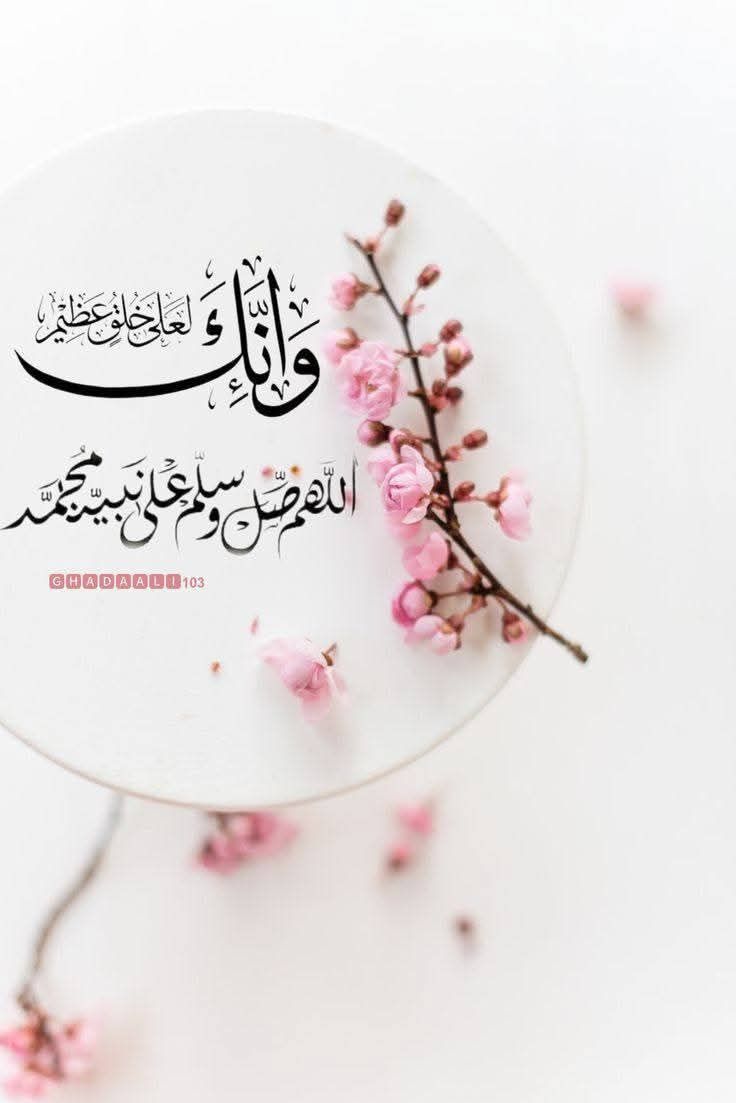 وَإِنَّكَ لَعَلَىٰ خُلُقٍ عَظِيْمٍ
اللَّهم صَلِّ وسلّم علىٰ نَبيّنا مُحمَّد
GHADAALI103